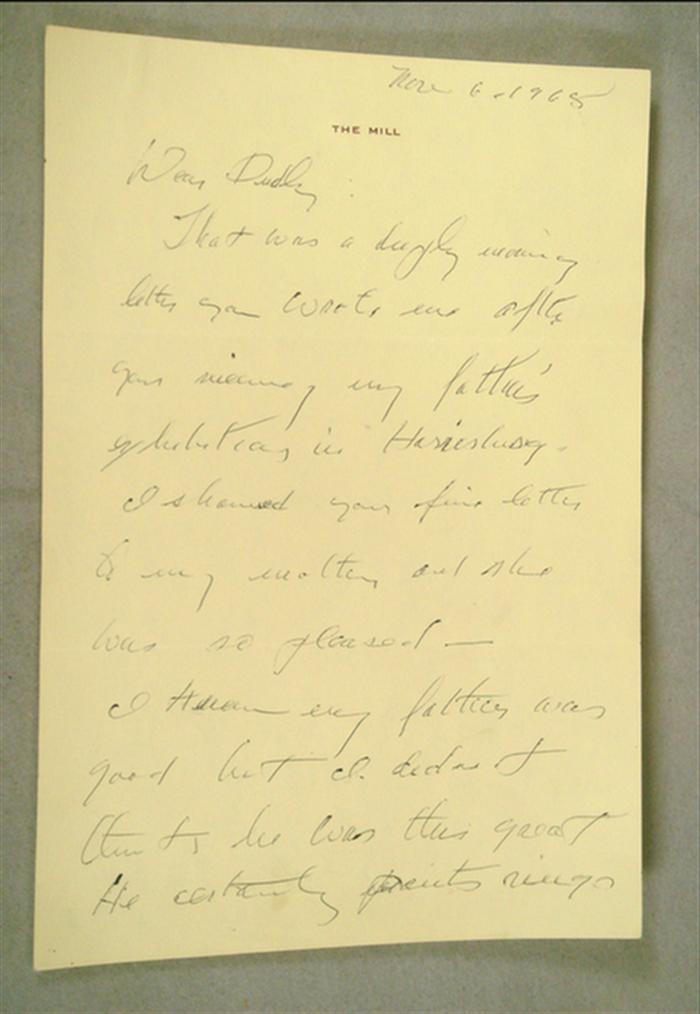 Nov 6-1965
THE MILL
Dear Dudley:
That was a deeply moving
letter you wrote me after
your viewing my father's
exhibition in Harrisburg.
I showed your fine letter
to my mother and she
was so pleased —
I knew my father was
good but I didn't
think he was this great
He certainly paints rings